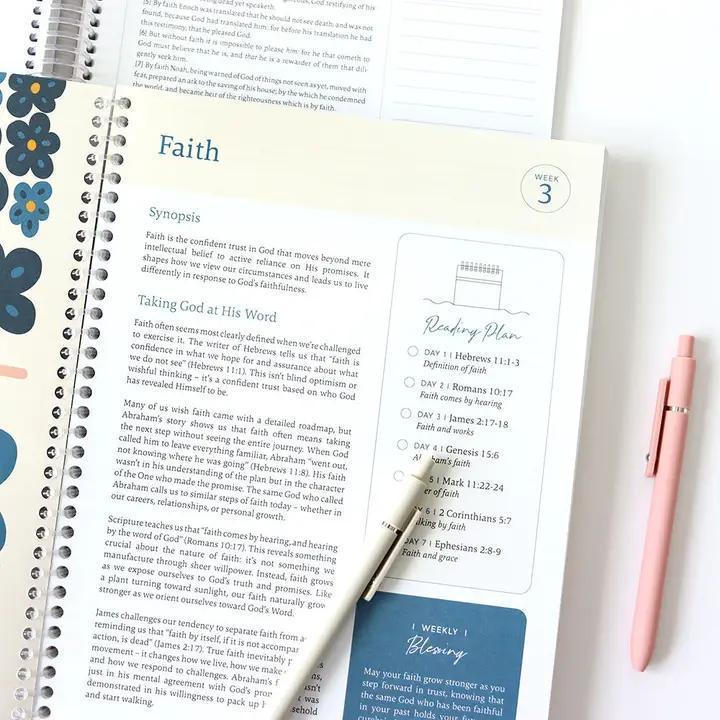 being dead yet speaketh.
[5] By faith Enoch was translated that he should not see death; and was not
found, because God had translated him: for before his translation he had
this testimony, that he pleased God.
[6] But without faith it is impossible to please him: for he that cometh to
God must believe that he is, and that he is a rewarder of them that dili-
gently seek him.
[7] By faith Noah, being warned of God of things not seen as yet, moved with
fear, prepared an ark to the saving of his house; by the which he condemned
the world, and became heir of the righteousness which is by faith.
Faith
WEEK
3
Synopsis
Faith is the confident trust in God that moves beyond mere
intellectual belief to active reliance on His promises. It
shapes how we view our circumstances and leads us to live
differently in response to God's faithfulness.
Taking God at His Word
Faith often seems most clearly defined when we're challenged
to exercise it. The writer of Hebrews tells us that "faith is
confidence in what we hope for and assurance about what
we do not see" (Hebrews 11:1). This isn't blind optimism or
wishful thinking – it's a confident trust based on who God
has revealed Himself to be.
Many of us wish faith came with a detailed roadmap, but
Abraham's story shows us that faith often means taking
the next step without seeing the entire journey. When God
called him to leave everything familiar, Abraham "went out,
not knowing where he was going" (Hebrews 11:8). His faith
wasn't in his understanding of the plan but in the character
of the One who made the promise. The same God who called
Abraham calls us to similar steps of faith today – whether in
our careers, relationships, or personal growth.
Scripture teaches us that "faith comes by hearing, and hearing
by the word of God" (Romans 10:17). This reveals something
crucial about the nature of faith: it's not something we
manufacture through sheer willpower. Instead, faith grows
as we expose ourselves to God's truth and promises. Like
a plant turning toward sunlight, our faith naturally grows
stronger as we orient ourselves toward God's Word.
James challenges our tendency to separate faith from
reminding us that "faith by itself, if it is not
action, is dead" (James 2:17). True faith inevitably
movement – it changes how we live, how we make
and how we respond to challenges. Abraham's
just in his mental agreement with God's
demonstrated in his willingness to pack up
and start walking.
Reading Plan
DAY 1 | Hebrews 11:1-3
Definition of faith
DAY 2 | Romans 10:17
Faith comes by hearing
DAY 3 | James 2:17-18
Faith and works
DAY 4 | Genesis 15:6
faith
5 | Mark 11:22-24
of faith
6 | 2 Corinthians 5:7
by faith
DAY 7 | Ephesians 2:8-9
Faith and grace
| WEEKLY |
Blessing
May your faith grow stronger as you
step forward in trust, knowing that
the same God who has been faithful
in your past holds your